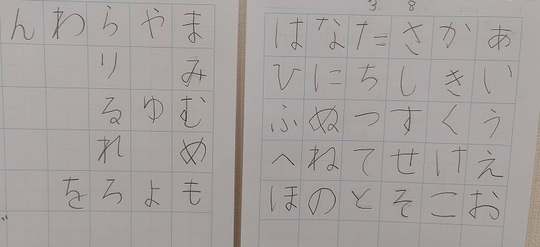 3 8
あいうえお
かきくけこ
さしすせそ
たちつてと
なにぬねの
はひふへほ
まみむめも
やゆよ
らりるれろ
わを
ん